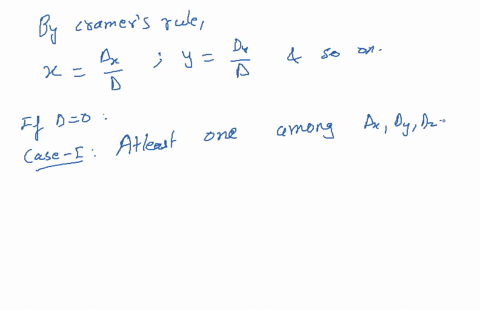 By cramer's rule,
x = Dx/D ; y = Dy/D & so on.
If D=0 :
Case-I : Atleast one among Dx, Dy, Dz..